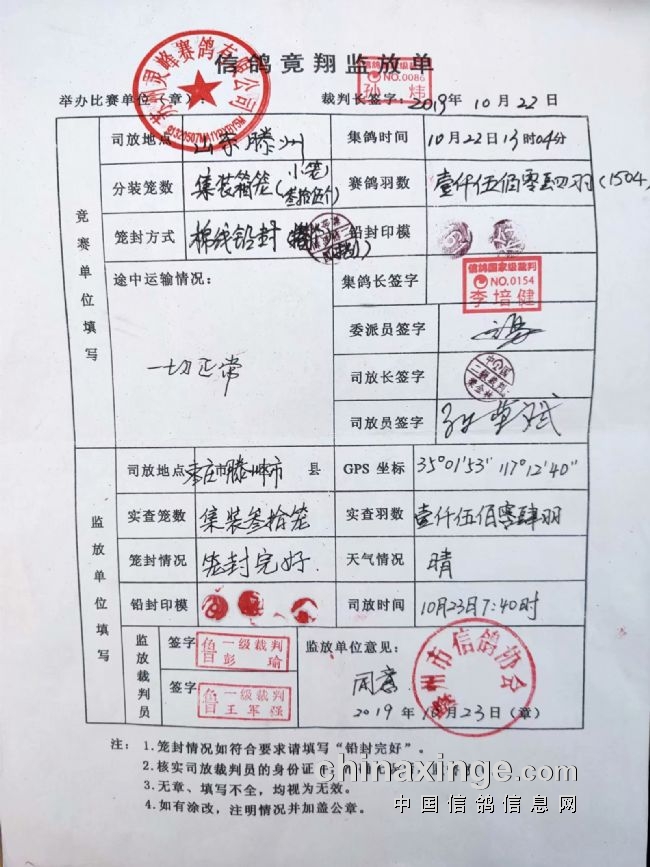 信鸽竟翔监放单
举办比赛单位（章）：
裁判长签字：2019年10月22日
NO.0086
孙炜
竞赛单位填写
司放地点 山东滕州
集鸽时间 10月22日13时04分
分装笼数 集装箱笼(小笼叁拾伍个)
赛鸽羽数 壹仟伍佰零四羽(1504
笼封方式 棉线铅封
铅封印模
途中运输情况：
一切正常
集鸽长签字
信鸽国家级裁判
NO.0154
李培健
委派员签字
司放长签字
司放员签字
监放单位填写
司放地点 枣庄市滕州市 县
GPS 坐标 35°01'53" 117°12'40"
实查笼数 集装叁拾笼
实查羽数 壹仟伍佰零肆羽
笼封情况 笼封完好.
天气情况 晴
铅封印模
司放时间 10月23日7:40时
监放裁判员
签字
一级裁判
彭瑜
签字
一级裁判
王军强
监放单位意见：
同意
滕州市信鸽协会
2019年10月23日（章）
注：1.笼封情况如符合要求请填写“铅封完好”。
2.核实司放裁判员的身份证
3.无章、填写不全，均视为无效。
4.如有涂改，注明情况并加盖公章。
chinaxinge.com
中国信鸽信息网